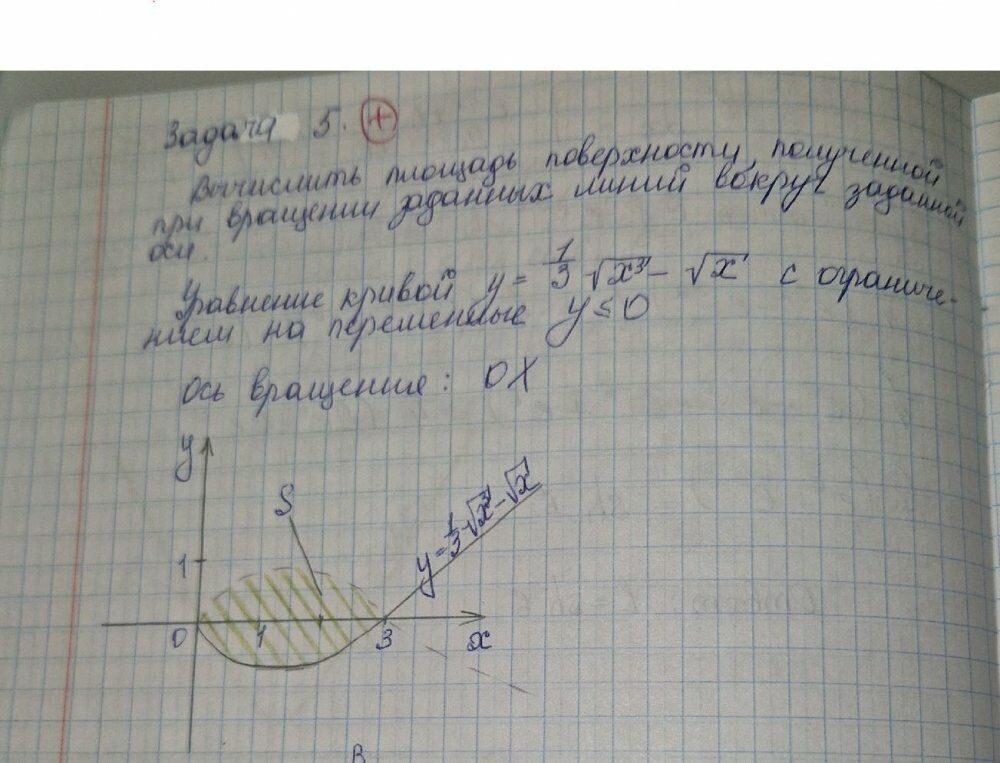 Задача 5. +
Вычислить площадь поверхности, полученной
при вращении заданных линий вокруг заданной
оси.
Уравнение кривой y = 1/3 √x³ - √x с ограниче-
нием на переменные y ≤ 0
ось вращения: OX
y
S
y = 1/3 √x³ - √x
1
0 1 3 x